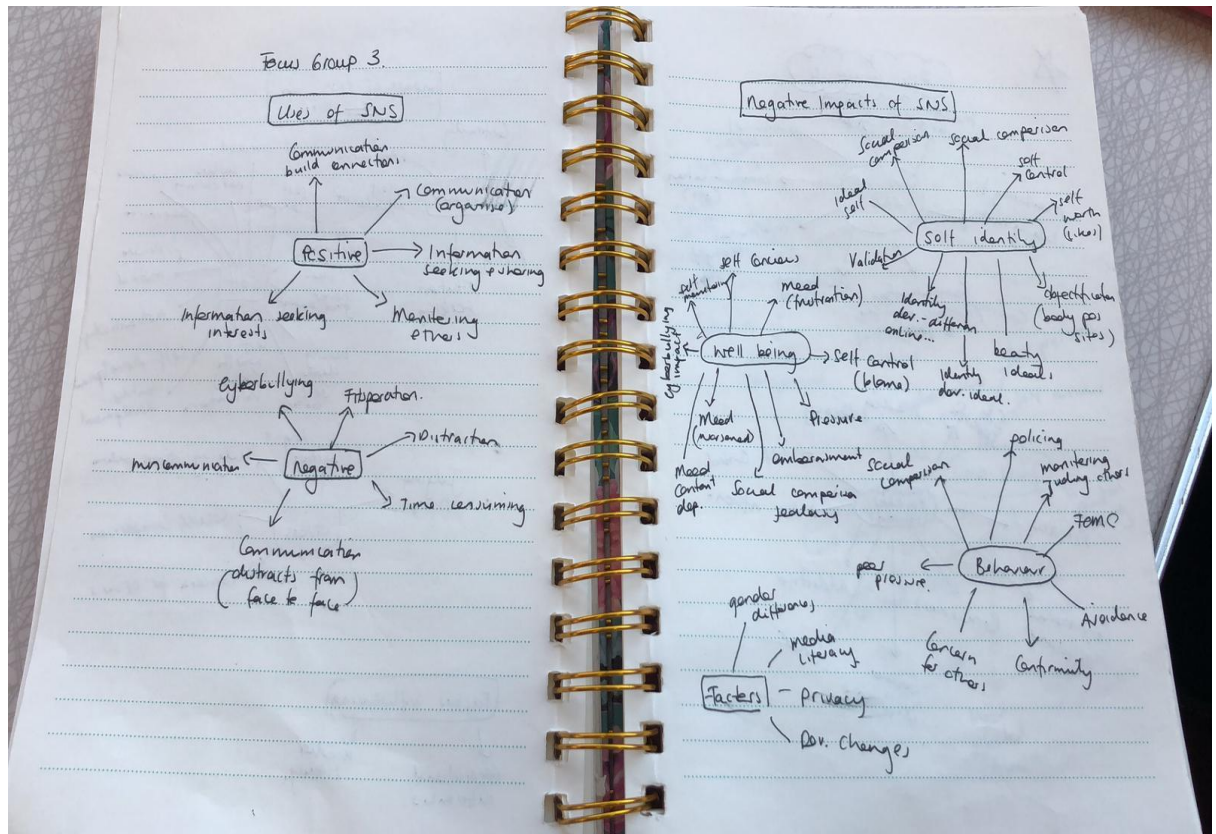 Focus Group 3.
Uses of SNS
Communication
build connections
Communication
(organise)
Positive
Information
seeking & sharing
Information seeking
interests
Monitoring
others
Cyberbullying
Distraction
miscommunication
Negative
Time consuming
Communication
(distracts from
face to face)
Negative Impacts of SNS
Social
comparison
Social comparison
self
control
ideal
self
self
worth
(likes)
Self identity
Validation
Identity
dev. - different
online...
Identity
dev. ideal.
beauty
ideals
objectification
(body pos
sites)
self monitoring
mood
(frustration)
Cyberbullying
impact
Well being
Self Control
(blame)
Mood
(worsened)
Pressure
embarrassment
Mood
content
dep.
Social comparison
jealousy
policing
social
comparison
monitoring
judging others
FOMO
Behaviour
peer
pressure.
Avoidance
Concern
for others
Conformity
gender
differences
media
literacy
Factors
Privacy
Dev. Changes